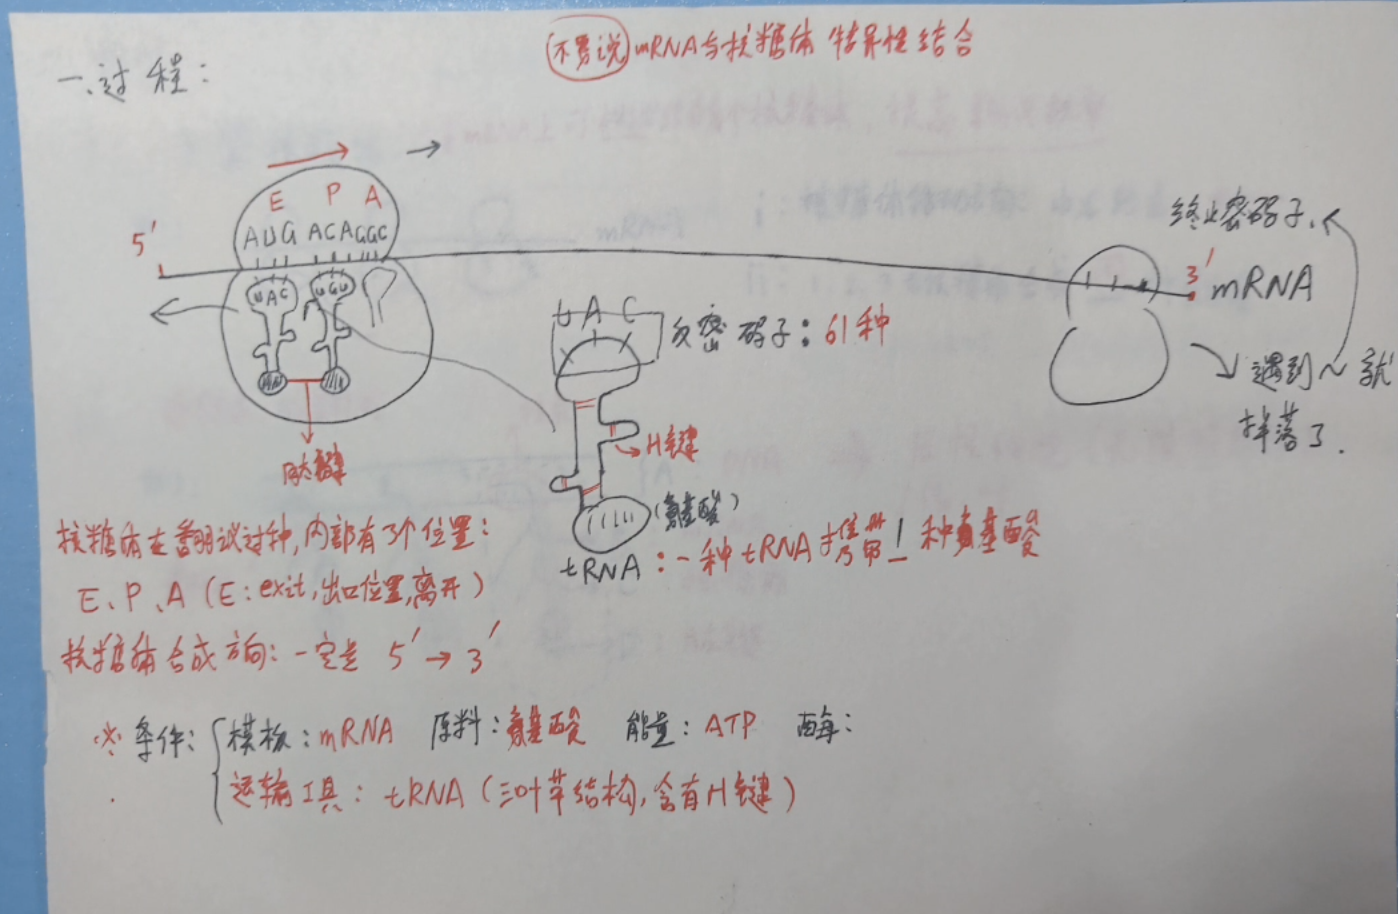 不要说mRNA与核糖体特异性结合
一、过程:
E P A
5'
AUG ACA GGC
UAC UGU
肽键
t A C
反密码子:61种
H键
(氨基酸)
tRNA:一种tRNA携带1种氨基酸
终止密码子
3' mRNA
遇到~就
掉落了.
核糖体在翻译过种,内部有3个位置:
E、P、A(E:exit,出口位置,离开)
核糖体合成方向:一定是 5'→3'
※条件: 模板:mRNA 原料:氨基酸 能量:ATP 酶:
运输工具:tRNA(三叶草结构,含有H键)